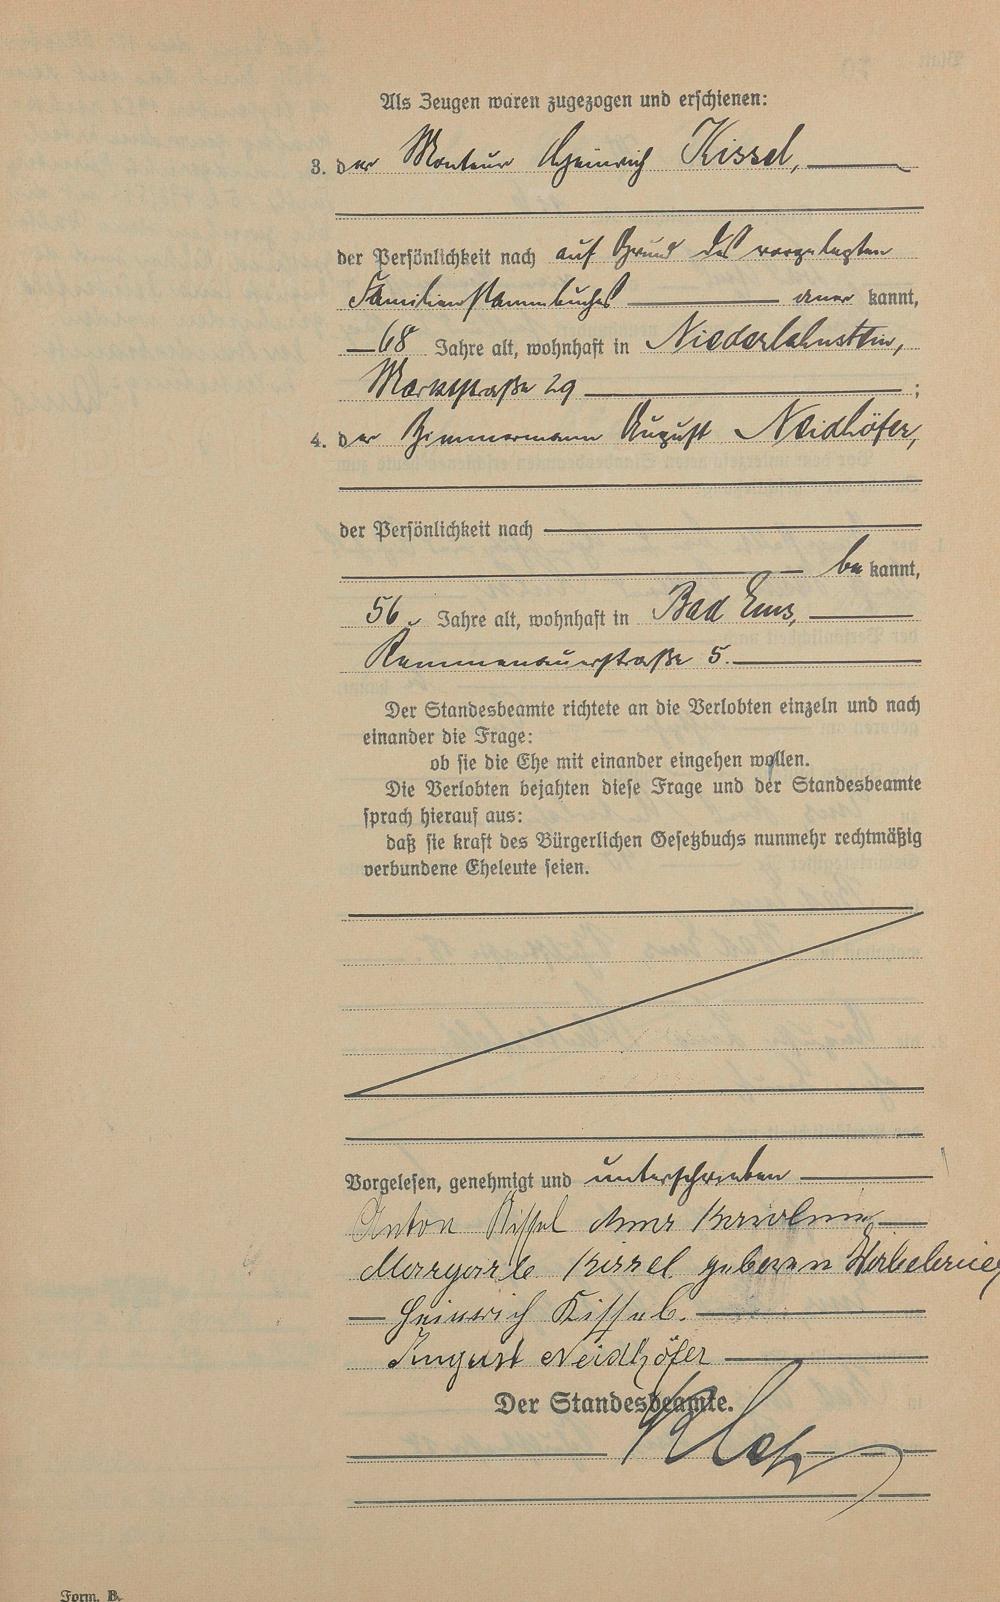 Als Zeugen waren zugezogen und erschienen:
3. der Monteur Heinrich Kissel,
der Persönlichkeit nach auf Grund des vorgelegten
Familienstammbuches aner kannt,
68 Jahre alt, wohnhaft in Niederlahnstein,
Marktstraße 29 ;
4. der Zimmermann August Neidhöfer,
der Persönlichkeit nach
be kannt,
56 Jahre alt, wohnhaft in Bad Ems,
Kemmenauerstraße 5.
Der Standesbeamte richtete an die Verlobten einzeln und nach
einander die Frage:
ob sie die Ehe mit einander eingehen wollen.
Die Verlobten bejahten diese Frage und der Standesbeamte
sprach hierauf aus:
daß sie kraft des Bürgerlichen Gesetzbuchs nunmehr rechtmäßig
verbundene Eheleute seien.
Vorgelesen, genehmigt und unterschrieben
Anton Kissel Anna Karoline
Margarete Kissel geborene
Heinrich Kissel.
August Neidhöfer
Der Standesbeamte.
Form. B.